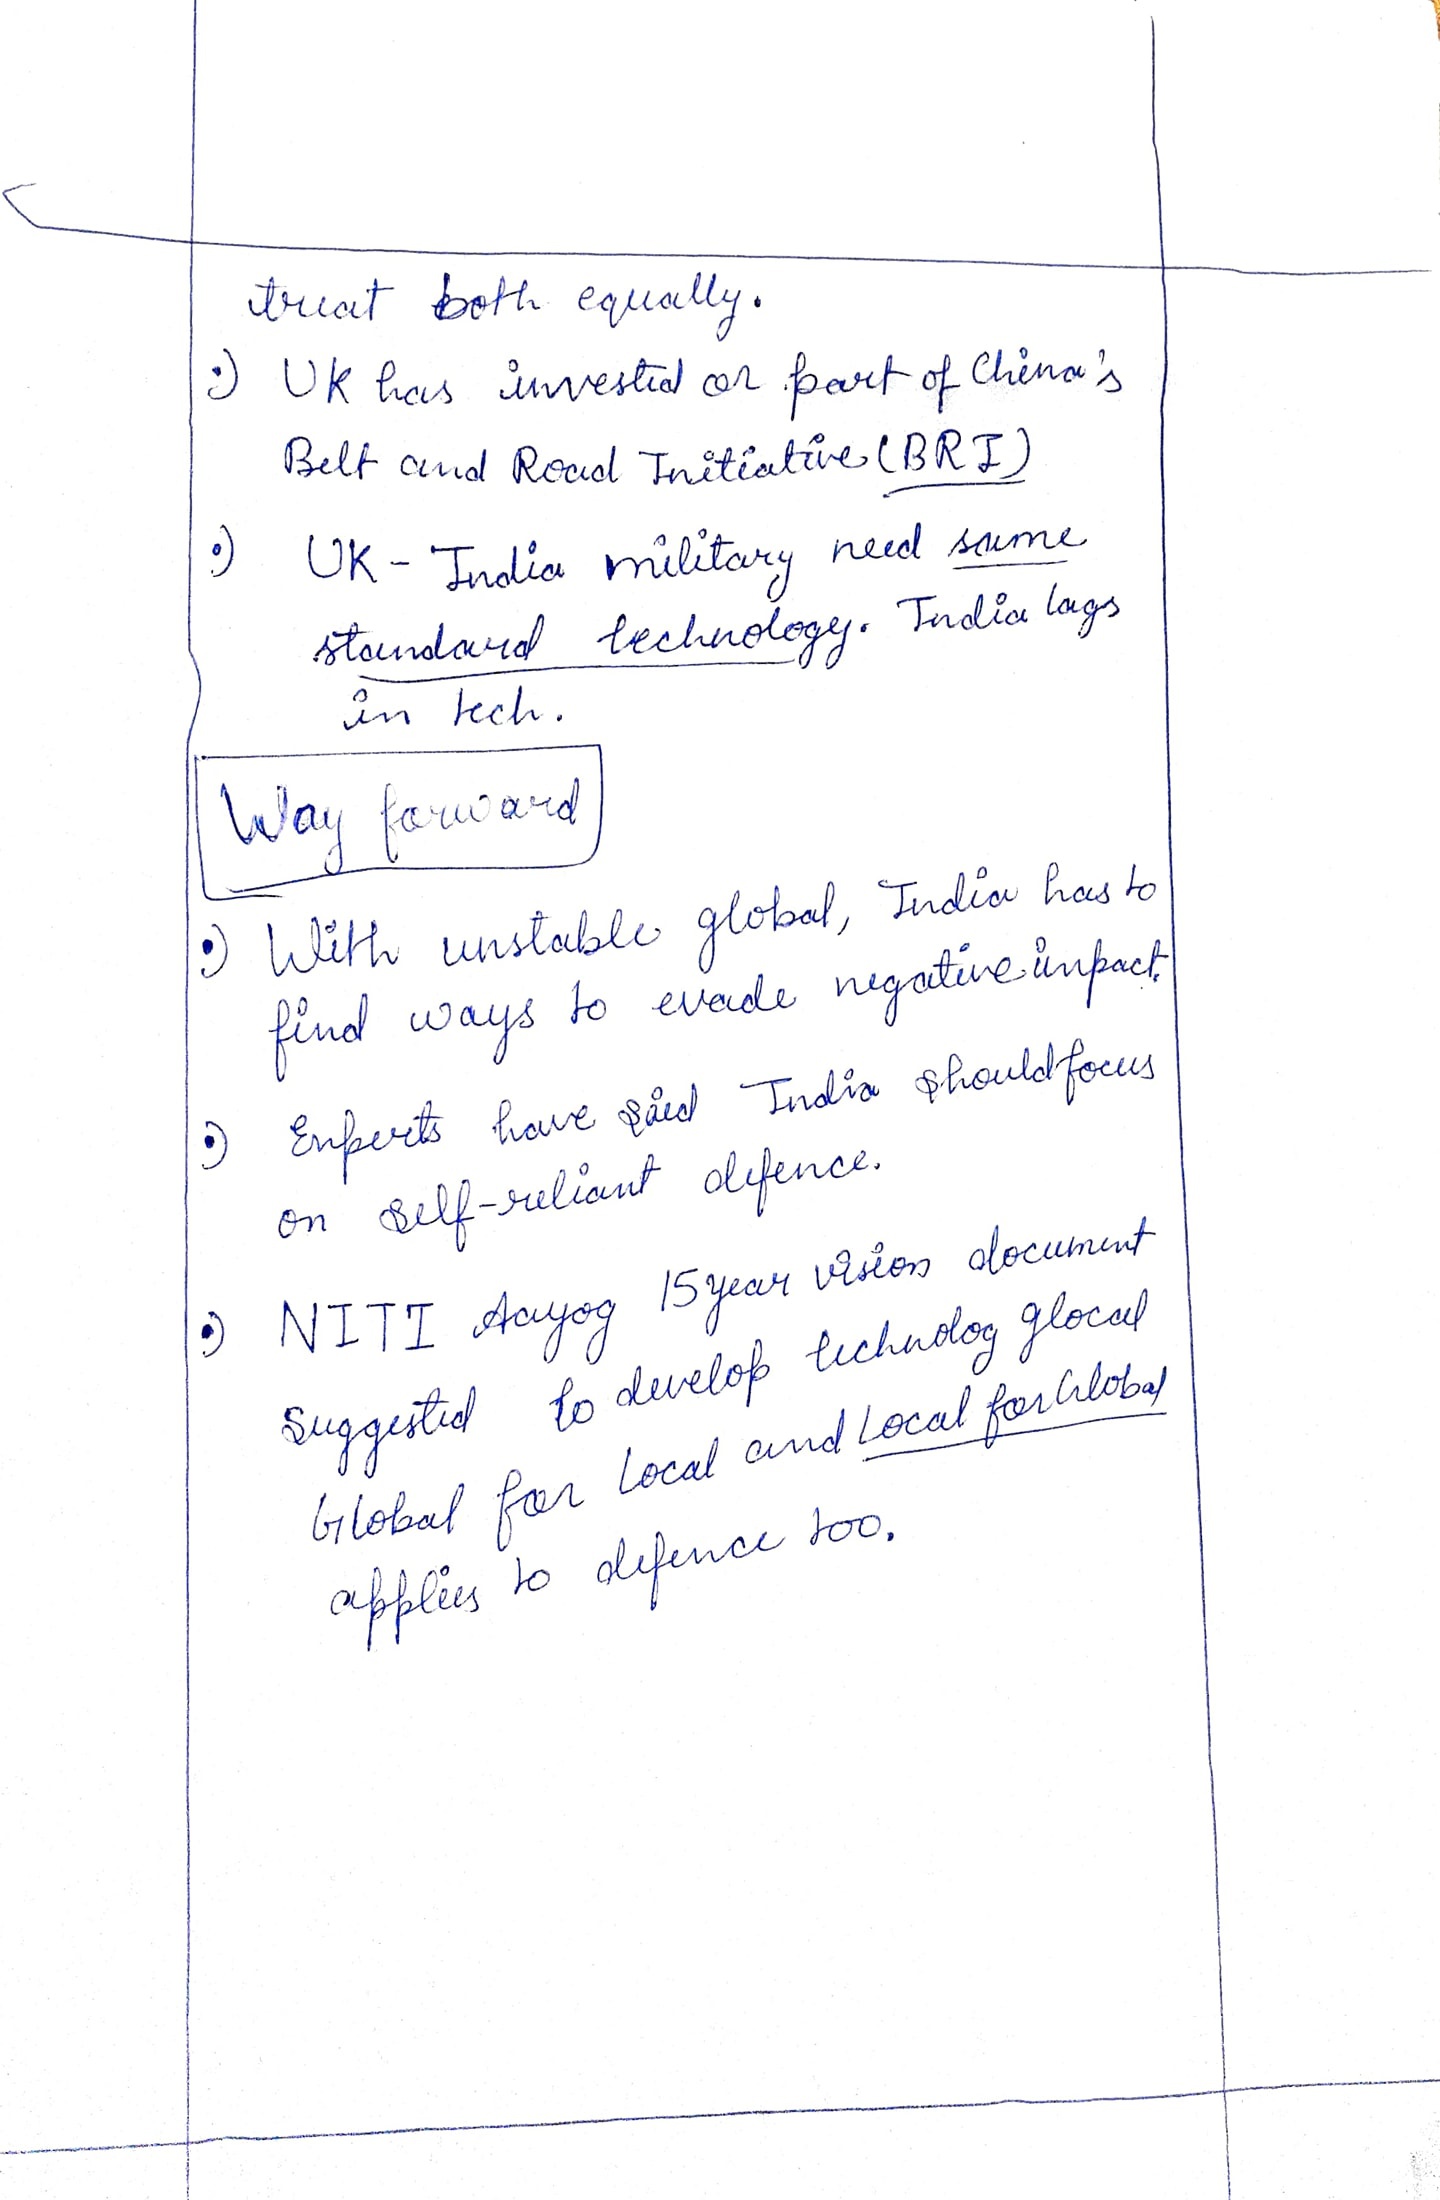 treat both equally.
:) UK has invested or part of China's
Belt and Road Initiative (BRI)
:) UK - India military need same
standard technology. India lags
in tech.
Way forward
:) With unstable global, India has to
find ways to evade negative impact.
:) Experts have said India should focus
on self-reliant defence.
:) NITI Aayog 15 year vision document
suggested to develop technolog glocal
Global for Local and Local for Global
applies to defence too.